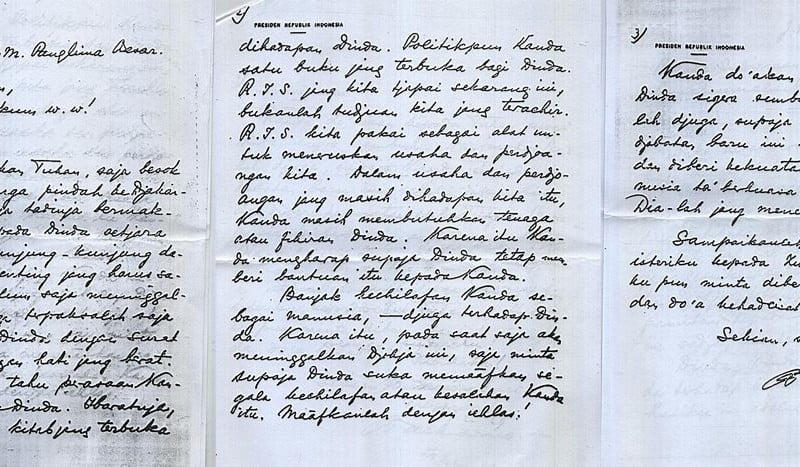 m. Panglima Besar.
n,
kum w.w!
kan Tuhan, saja besok
rga pindah ke Djakar-
bermak-
pada Dinda setjara
unjung-kunjung da-
enting jang harus sa-
lum saja meninggal-
terpaksalah saja
Dinda dengan surat
gan hati jang berat.
tahu perasaan Kan-
Dinda. Ibaratnja,
kitab jang terbuka
2)
PRESIDEN REPUBLIK INDONESIA
dihadapan Dinda. Politikpun Kanda
satu buku jang terbuka bagi Dinda.
R.I.S. jang kita tjapai sekarang ini,
bukanlah tudjuan kita jang terachir.
R.I.S. kita pakai sebagai alat un-
tuk meneruskan usaha dan perdjoa-
ngan kita. Dalam usaha dan perdjo-
angan jang masih dihadapan kita itu,
Kanda masih membutuhkan tenaga
atau fikiran Dinda. Karena itu Kan-
da mengharap supaja Dinda tetap mem
beri bantuan itu kepada Kanda.
Banjak kechilafan Kanda se-
bagai manusia, — djuga terhadap Din-
da. Karena itu, pada saat saja akan
meninggalkan Djokja ini, saja minta
supaja Dinda suka memaafkan se-
gala kechilafan atau kesalahan Kanda
itu. Maafkanlah dengan ichlas!
3)
PRESIDEN REPUBLIK INDONESIA
Kanda do'akan
Dinda segera semb
lah djuga, supaja
djabatan baru ini
dan diberi kekuata
nusia ta' berkuasa
Dia-lah jang men
Sampaikanl
isteriku kepada
ku pun minta dibe
dan do'a kehad
Sekian, s